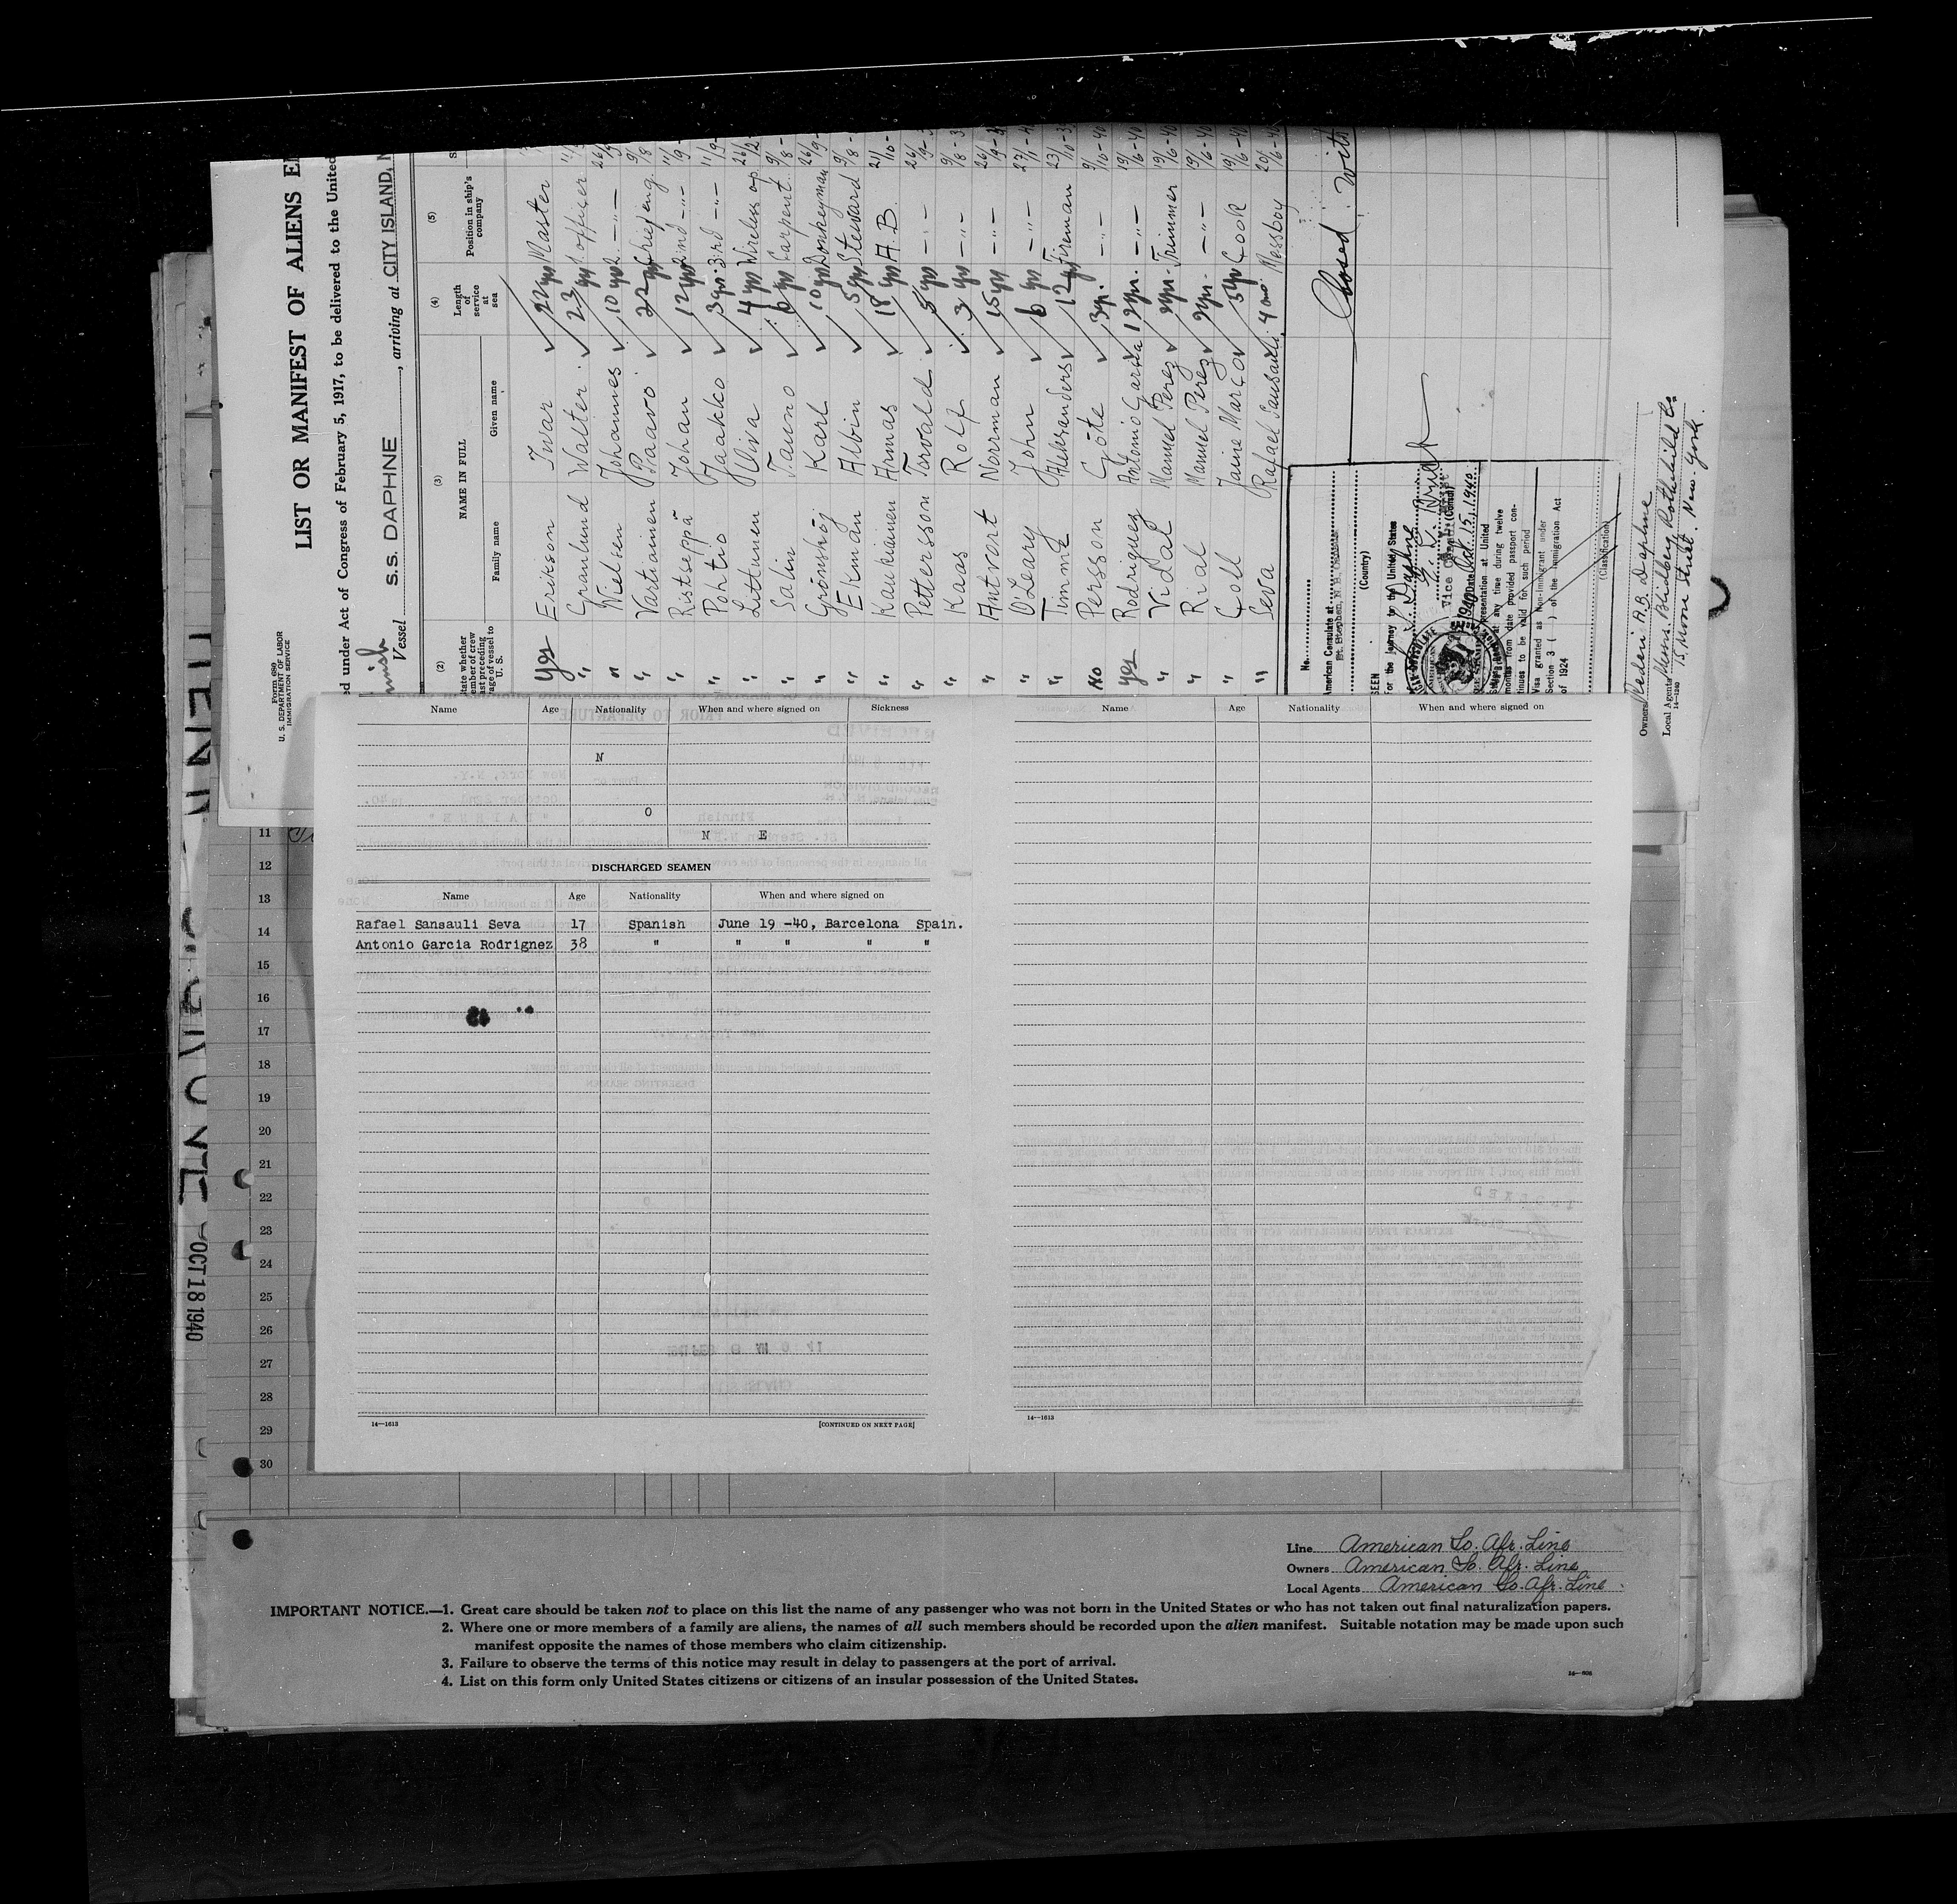 Form 689
U. S. DEPARTMENT OF LABOR
IMMIGRATION SERVICE
LIST OR MANIFEST OF ALIENS
ed under Act of Congress of February 5, 1917, to be delivered to the United
Vessel S.S. DAPHNE, arriving at CITY ISLAND, N
(2) (3) (4) (5)
NAME IN FULL
State whether member of crew last preceding voyage of vessel to U. S.
Family name Given name
Length of service at sea
Position in ship's company
Yes Erikson Ivar 22 yrs Master
" Granlund Walter 23 yrs 1. officer
" Nielsen Johannes 10 yrs 2. -"-
" Vartiainen Paavo 22 yrs Chief eng.
" Ristseppä Johan 12 yrs 2nd -"-
" Pohtio Jaakko 3 yrs. 3rd -"-
" Littunen Oiva 4 yrs Wireless op.
" Salin Tauno 6 yrs Carpent.
" Grönshöj Karl 10 yrs Donkeyman
" Ekman Albin 5 yrs Steward
" Kaukiainen Armas 18 yrs A.B.
" Pettersson Torvald 5 yrs -"-
" Kaas Rolf 3 yrs -"-
" Antvort Norrman 15 yrs -"-
" O'Leary John 6 yrs -"-
" Timme Aleksanders 12 yrs Fireman
No Persson Göte 3 yr. -"-
Yes Rodriguez Antonio Garcia 1 yrs. -"-
" Vidal Manuel Perez 2 yrs. Trimmer
" Rial Manuel Perez 2 yrs. -"-
" Coll Jaime Marco 5 yrs Cook
" Seva Rafael Sausauli 4 mo Messboy
Closed with
No.
American Consulate at
St. Stephen, N. B.
(Country)
SEEN
For the journey to the United States
S.S. Daphne
Vice Consul
Date Oct. 15, 1940
Section 3 ( ) of the Immigration Act
of 1924
(Classification)
Owners Rederi A.B. Daphne
Local Agents Messrs. Blidberg Rothchild Co
15, Moore Street. New York.
14-1240
Name Age Nationality When and where signed on Sickness
N
O
N E
DISCHARGED SEAMEN
Name Age Nationality When and where signed on
Rafael Sansauli Seva 17 Spanish June 19 -40, Barcelona Spain.
Antonio Garcia Rodrignez 38 " " " " "
14—1613 [CONTINUED ON NEXT PAGE]
Name Age Nationality When and where signed on
14—1613
11
12
13
14
15
16
17
18
19
20
21
22
23
24
25
26
27
28
29
30
OCT 18 1940
Line American So. Afr. Line
Owners American So. Afr. Line
Local Agents American So. Afr. Line
IMPORTANT NOTICE.—1. Great care should be taken not to place on this list the name of any passenger who was not born in the United States or who has not taken out final naturalization papers.
2. Where one or more members of a family are aliens, the names of all such members should be recorded upon the alien manifest. Suitable notation may be made upon such
manifest opposite the names of those members who claim citizenship.
3. Failure to observe the terms of this notice may result in delay to passengers at the port of arrival.
4. List on this form only United States citizens or citizens of an insular possession of the United States.
14—608